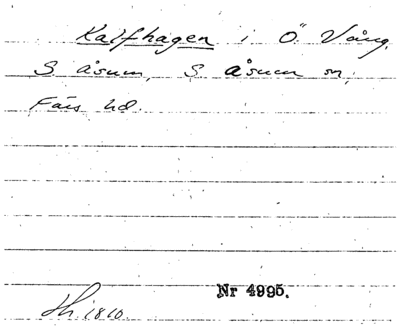 Kalfhagen i Ö. Vång,
S åsum, S åsum sn,
Färs hd.
Nr 4995.
Sk. 1810.